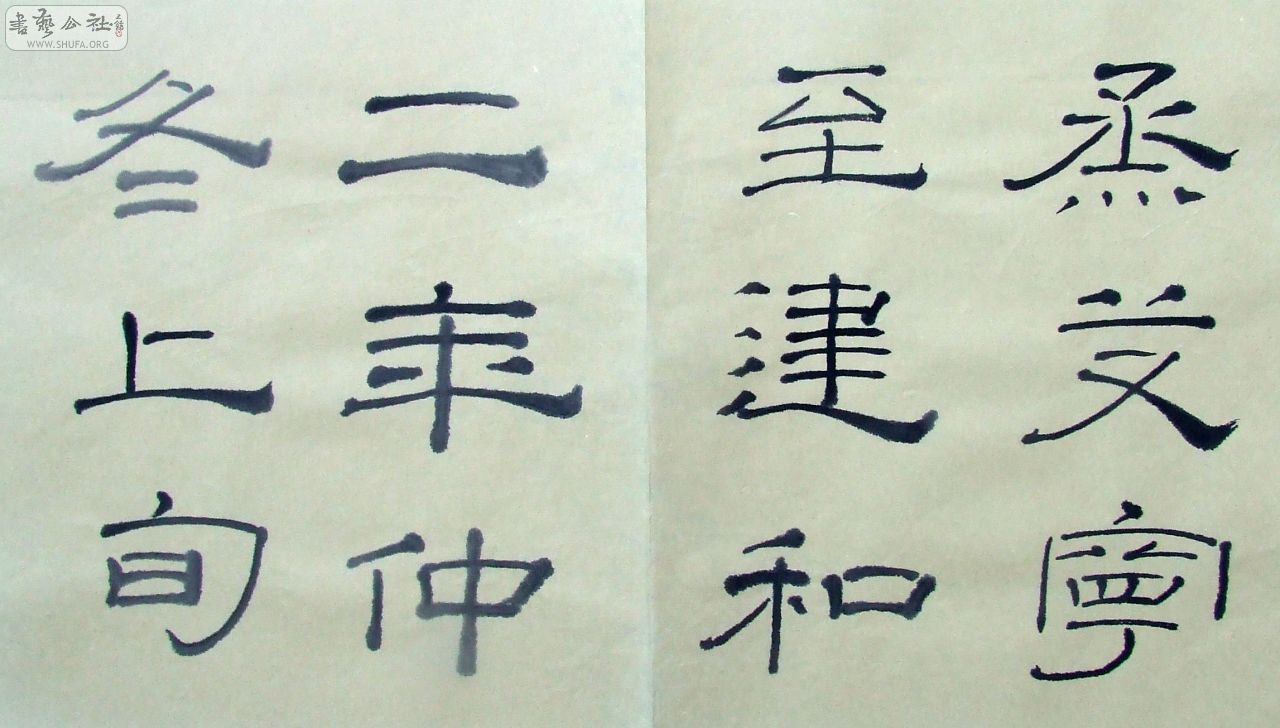 烝艾寧
至建和
二年仲
冬上旬
書藝公社
WWW.SHUFA.ORG